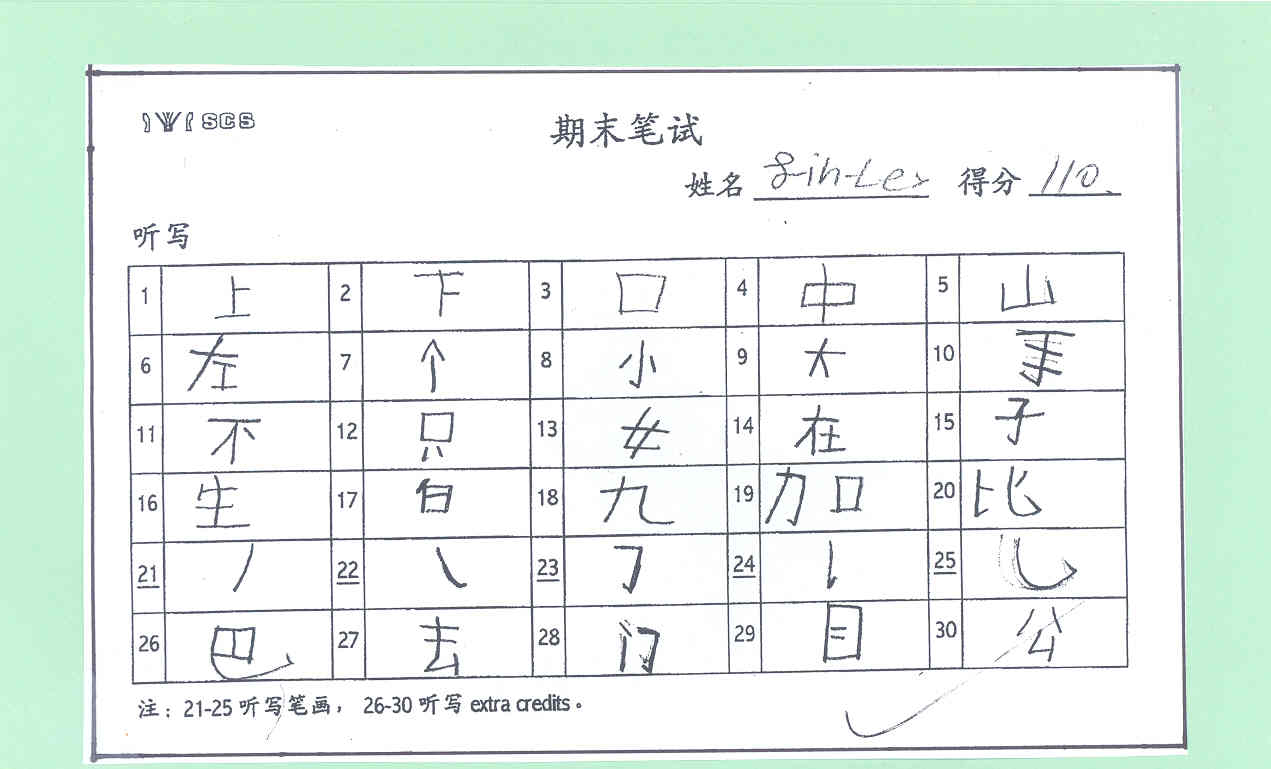 SCS
期末笔试
姓名 得分 110
听写
1 上 2 下 3 口 4 中 5 山
6 左 7 个 8 小 9 大 10 手
11 不 12 只 13 女 14 在 15 子
16 生 17 白 18 九 19 加 20 比
21 丿 22 ㇏ 23 ㇆ 24 亅 25 ㇃
26 巴 27 去 28 门 29 目 30 公
注：21-25 听写笔画， 26-30 听写 extra credits。